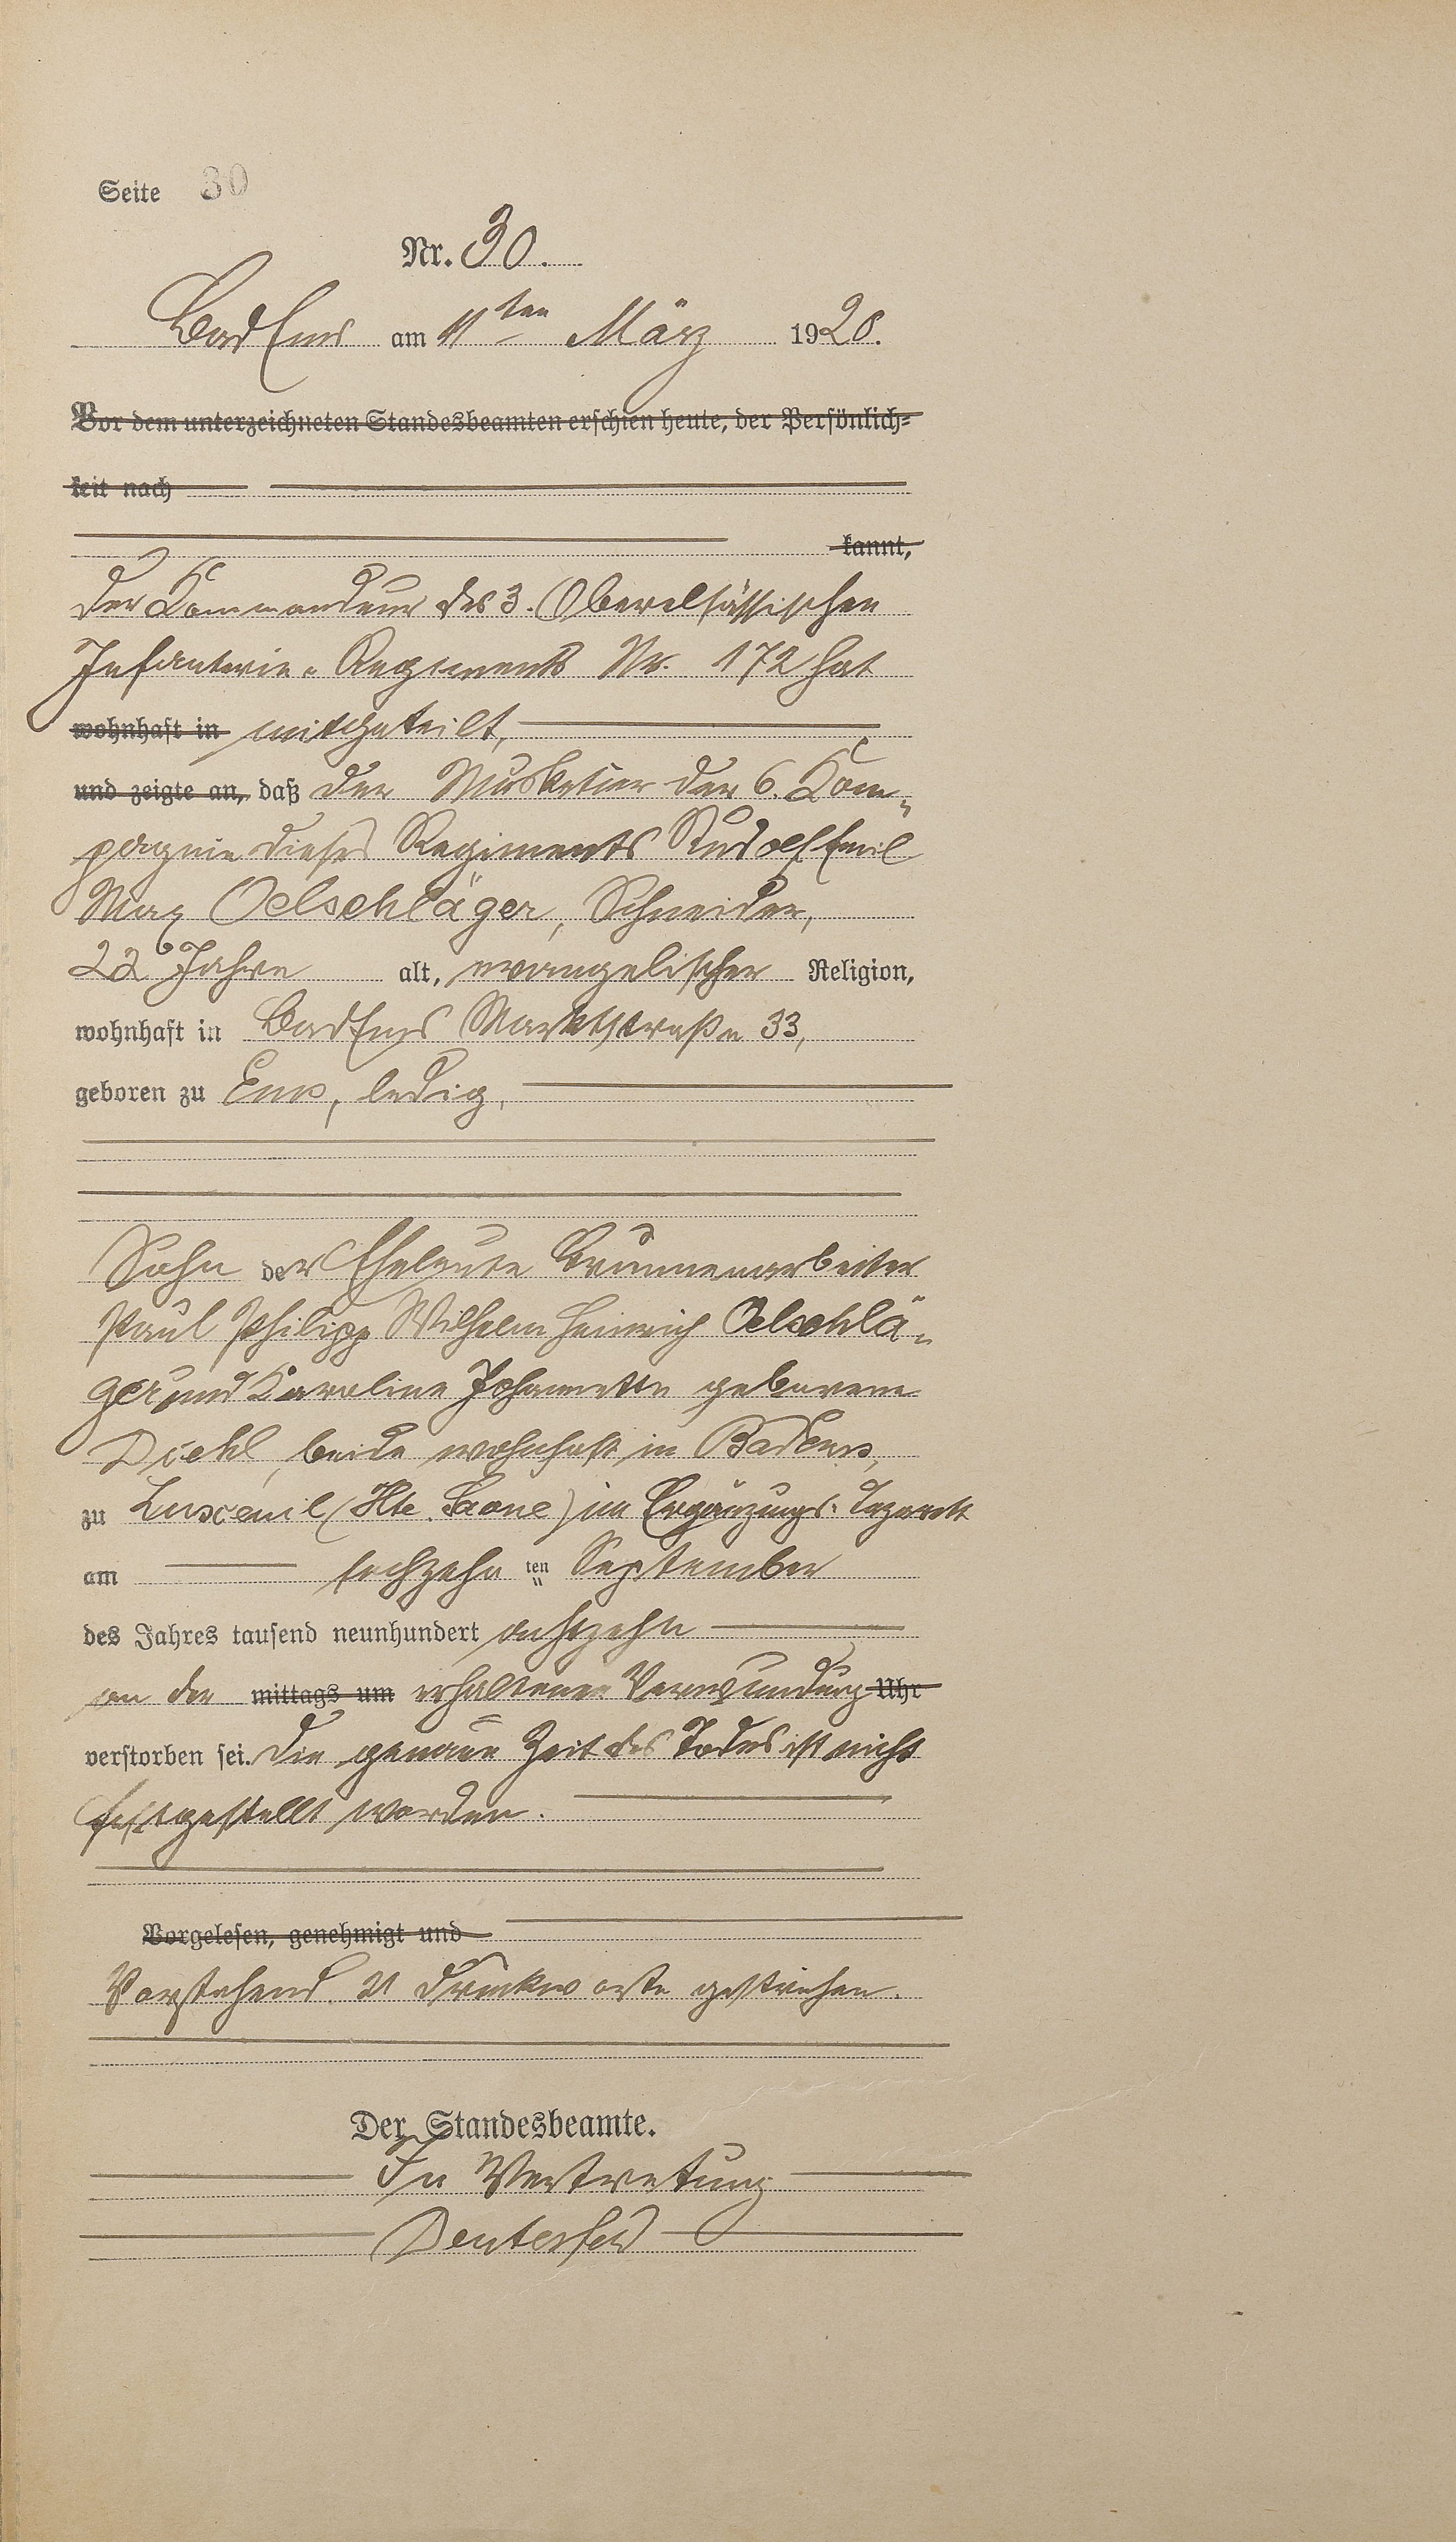 Seite 30
Nr. 30.
Bad Ems am 11ten März 1920.
Vor dem unterzeichneten Standesbeamten erschien heute, der Persönlich=
keit nach
kannt,
Der Kommandeur des 3. Oberelsässischen
Infanterie-Regiments Nr. 172 hat
wohnhaft in mitgeteilt,
und zeigte an, daß der Musketier der 6. Kom-
pagnie dieses Regiments Rudolf Emil
Max Oelschläger, Schneider,
22 Jahre alt, evangelischer Religion,
wohnhaft in Bad Ems Marktstraße 33,
geboren zu Ems, ledig,
Sohn der Eheleute Brunnenarbeiter
Paul Philipp Wilhelm Heinrich Oelschlä-
ger und Karoline Johannette geborene
Diehl, beide wohnhaft in Bad Ems,
zu Luxeuil (Hte. Saone) im Ergänzungs-Lazarett
am sechzehn ten September
des Jahres tausend neunhundert achtzehn
an der mittags um erhaltenen Verwundung Uhr
verstorben sei. Die genaue Zeit des Todes ist nicht
festgestellt worden.
Vorgelesen, genehmigt und
Vorstehend 21 Druckworte gestrichen.
Der Standesbeamte.
In Vertretung